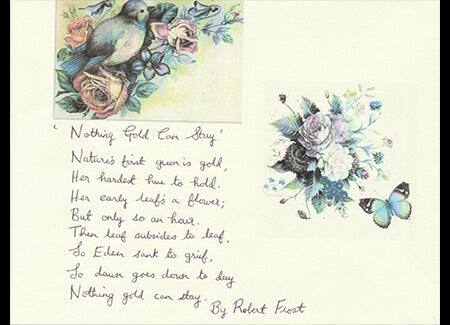 'Nothing Gold Can Stay'
Nature's first green is gold,
Her hardest hue to hold.
Her early leaf's a flower;
But only so an hour.
Then leaf subsides to leaf,
So Eden sank to grief,
So dawn goes down to day
Nothing gold can stay.
By Robert Frost